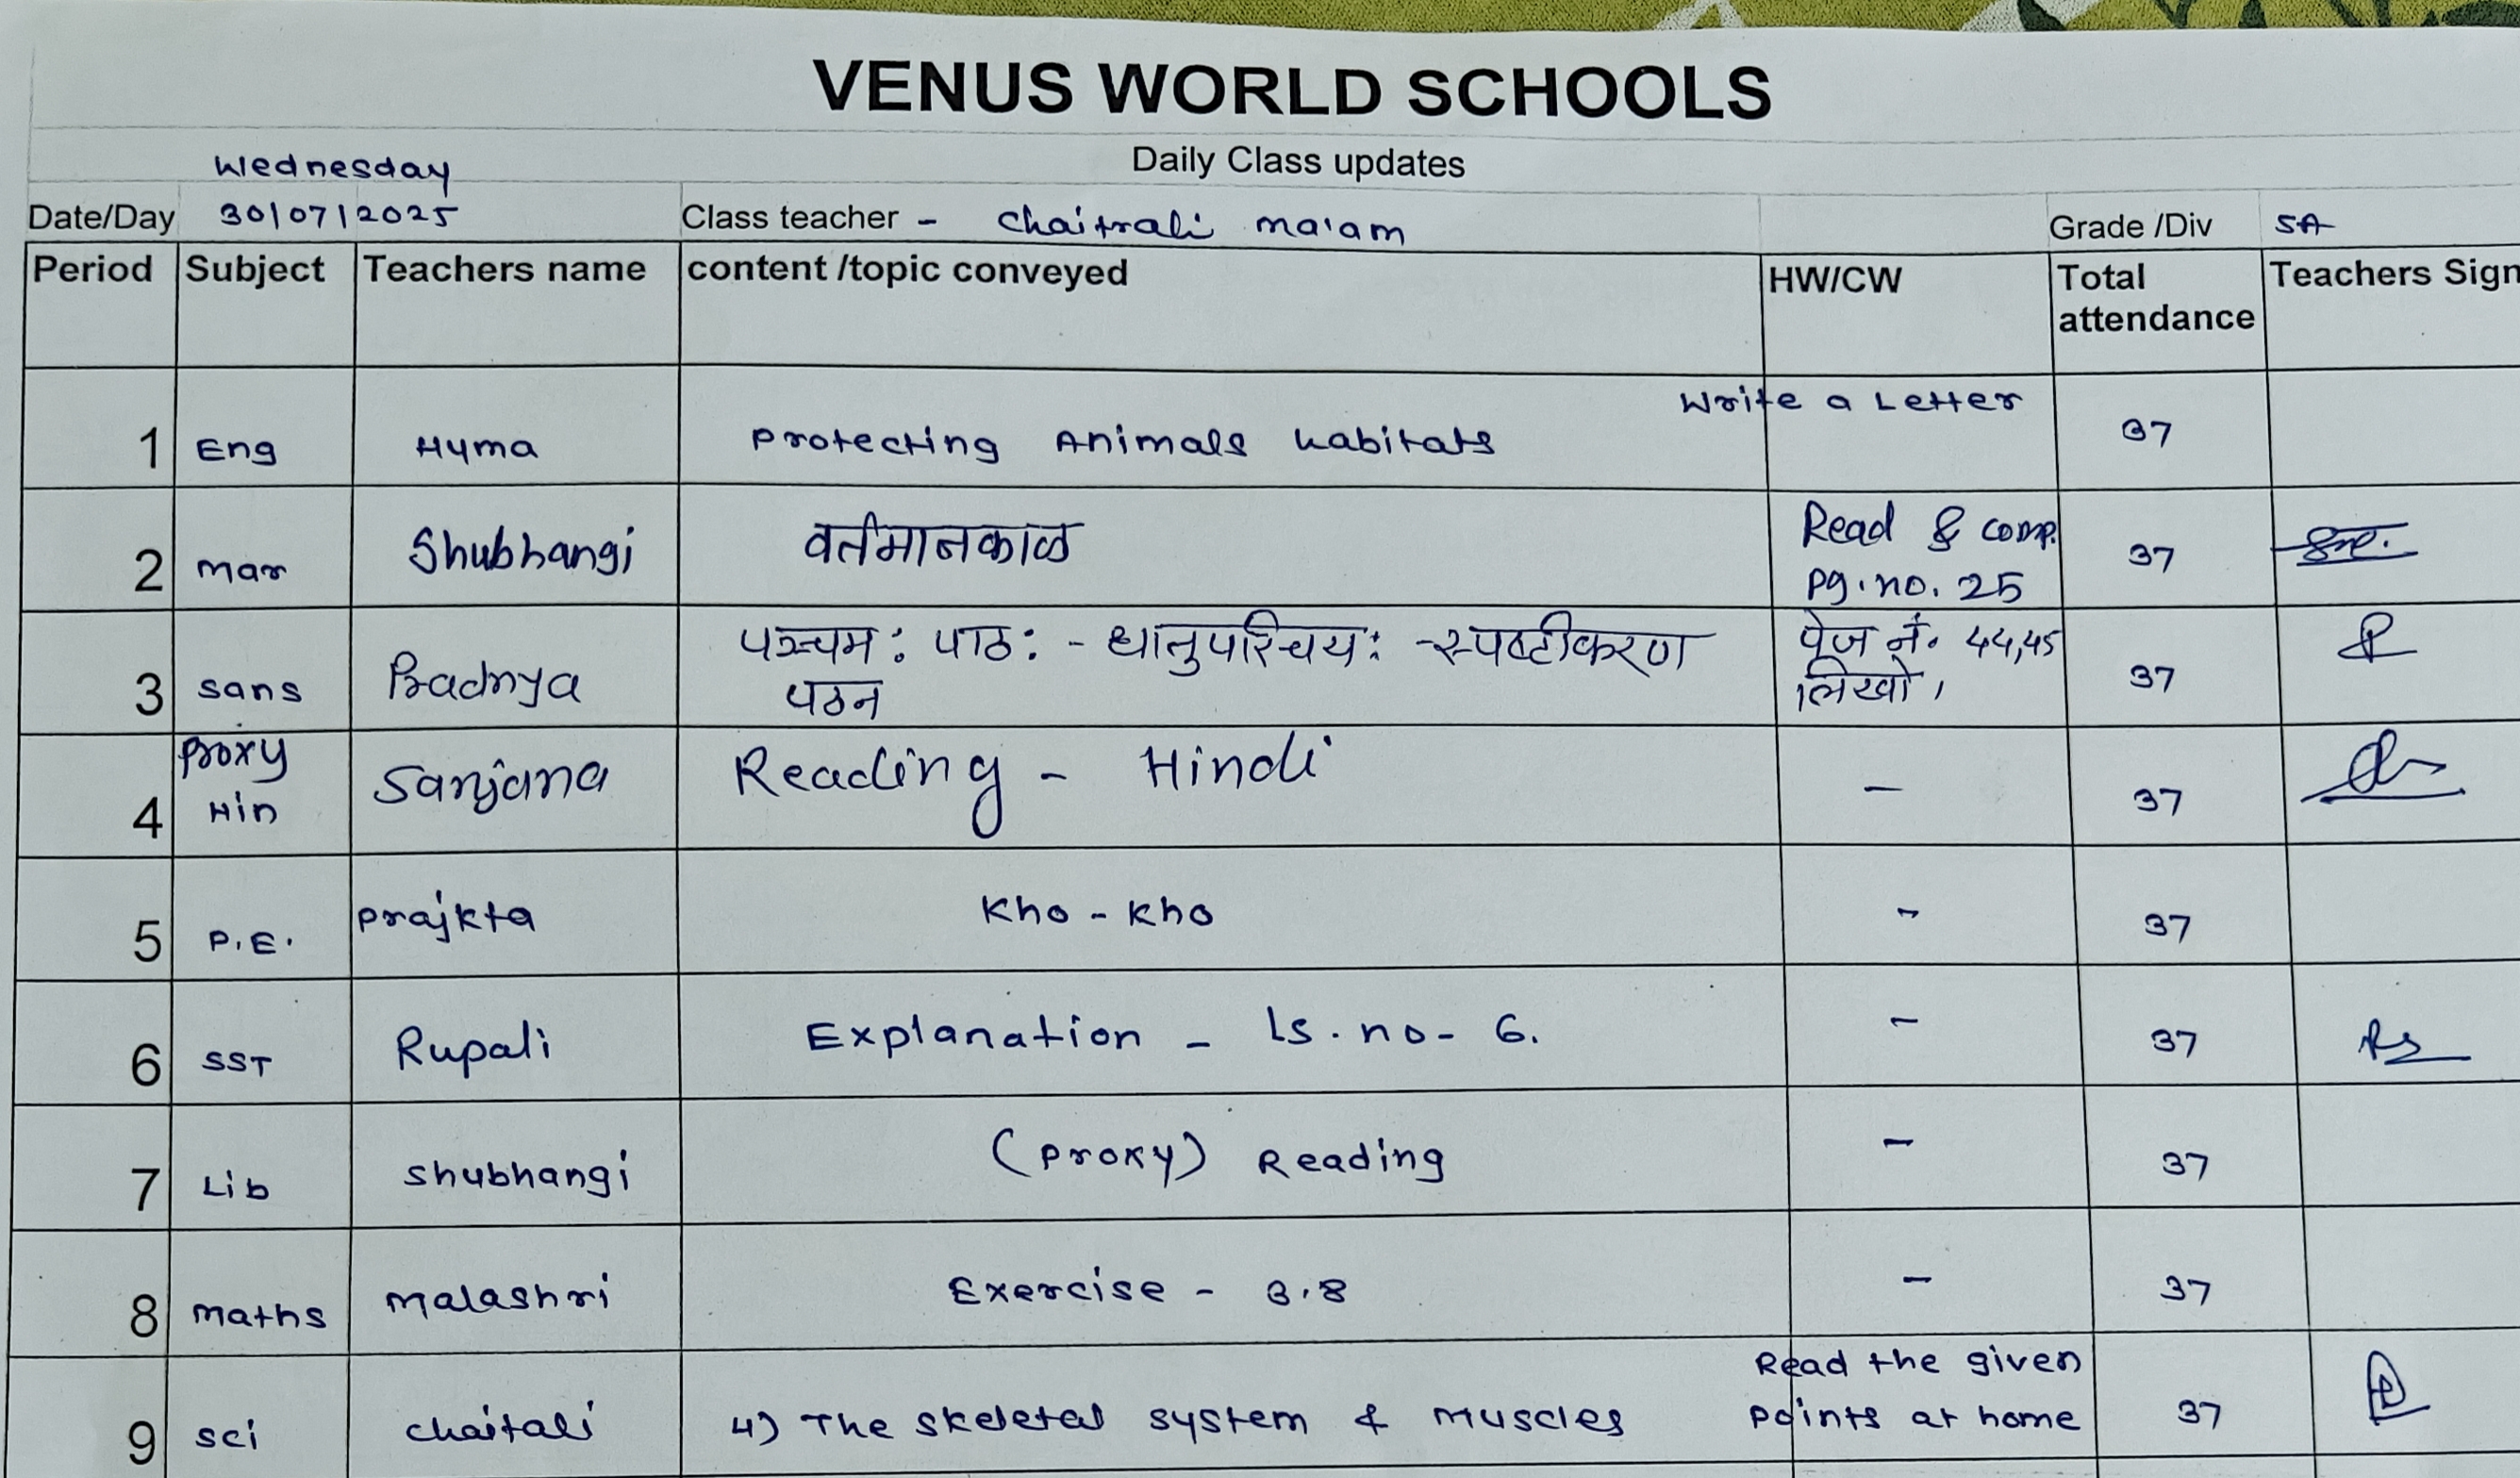 VENUS WORLD SCHOOLS
Daily Class updates
Wednesday
Date/Day 30/07/2025 Class teacher - Chaitrali ma'am Grade /Div 5A
Period Subject Teachers name content /topic conveyed HW/CW Total attendance Teachers Sign
1 Eng Hyma Protecting Animals habitats Write a Letter 37
2 Mar Shubhangi वर्तमानकाळ Read & comp. pg. no. 25 37
3 Sans Pradnya पञ्चमः पाठः - धातुपरिचयः - स्पष्टीकरण पेज नं. 44,45 37
पठन लिखो,
4 Proxy Hin Sanjana Reading - Hindi - 37
5 P.E. Prajkta Kho - Kho - 37
6 SST Rupali Explanation - Ls. no- 6. - 37 Rs
7 Lib Shubhangi (Proxy) Reading - 37
8 Maths Malashri Exercise - 3.8 - 37
9 Sci Chaitali 4) The Skeletal System & Muscles Read the given points at home 37